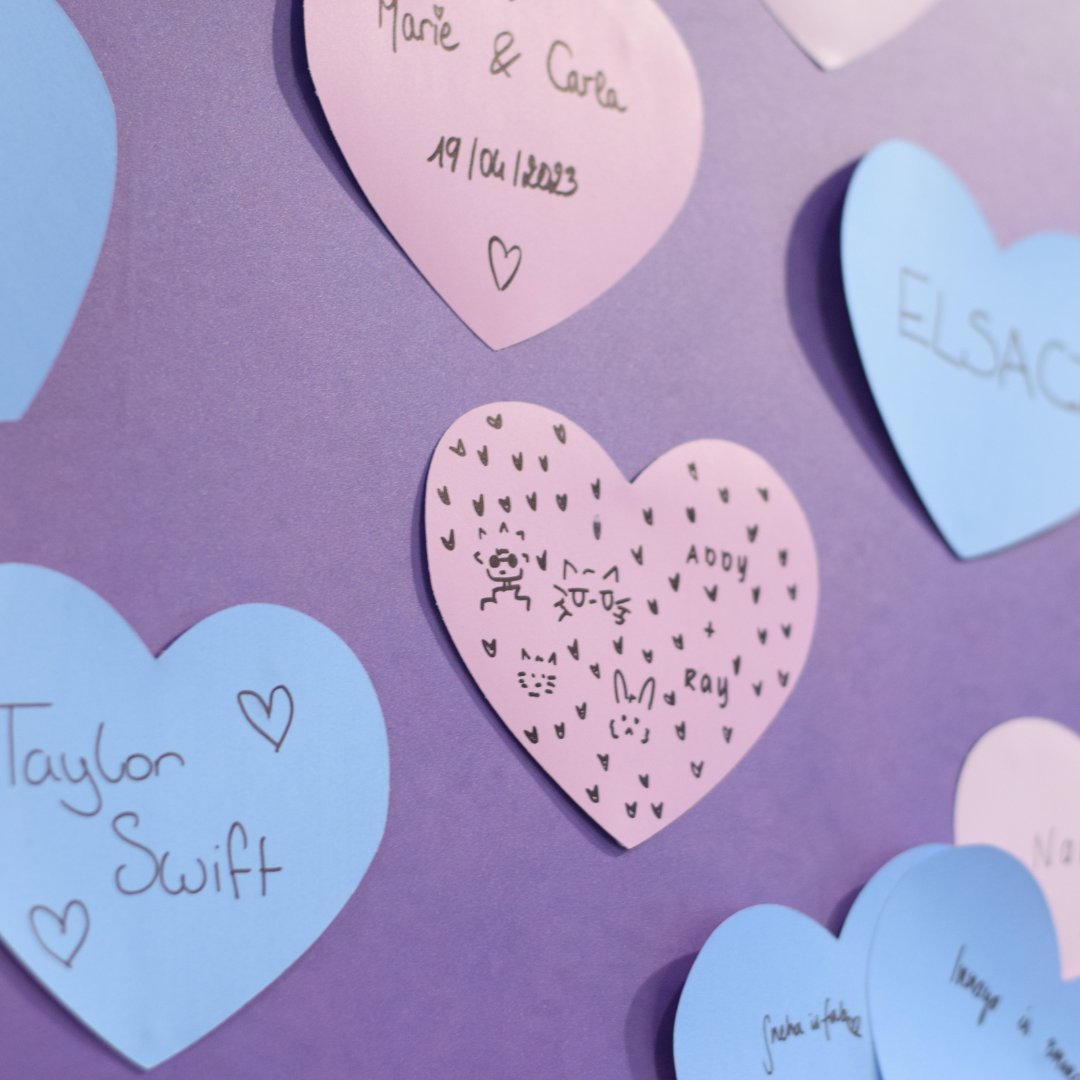 Marie & Carla
19/04/2023
ELSAC
ADDY
+
Ray
Taylor
Swift
Na
Sneha is
Inaaya is